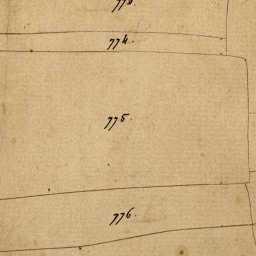 773.
774.
775.
776.